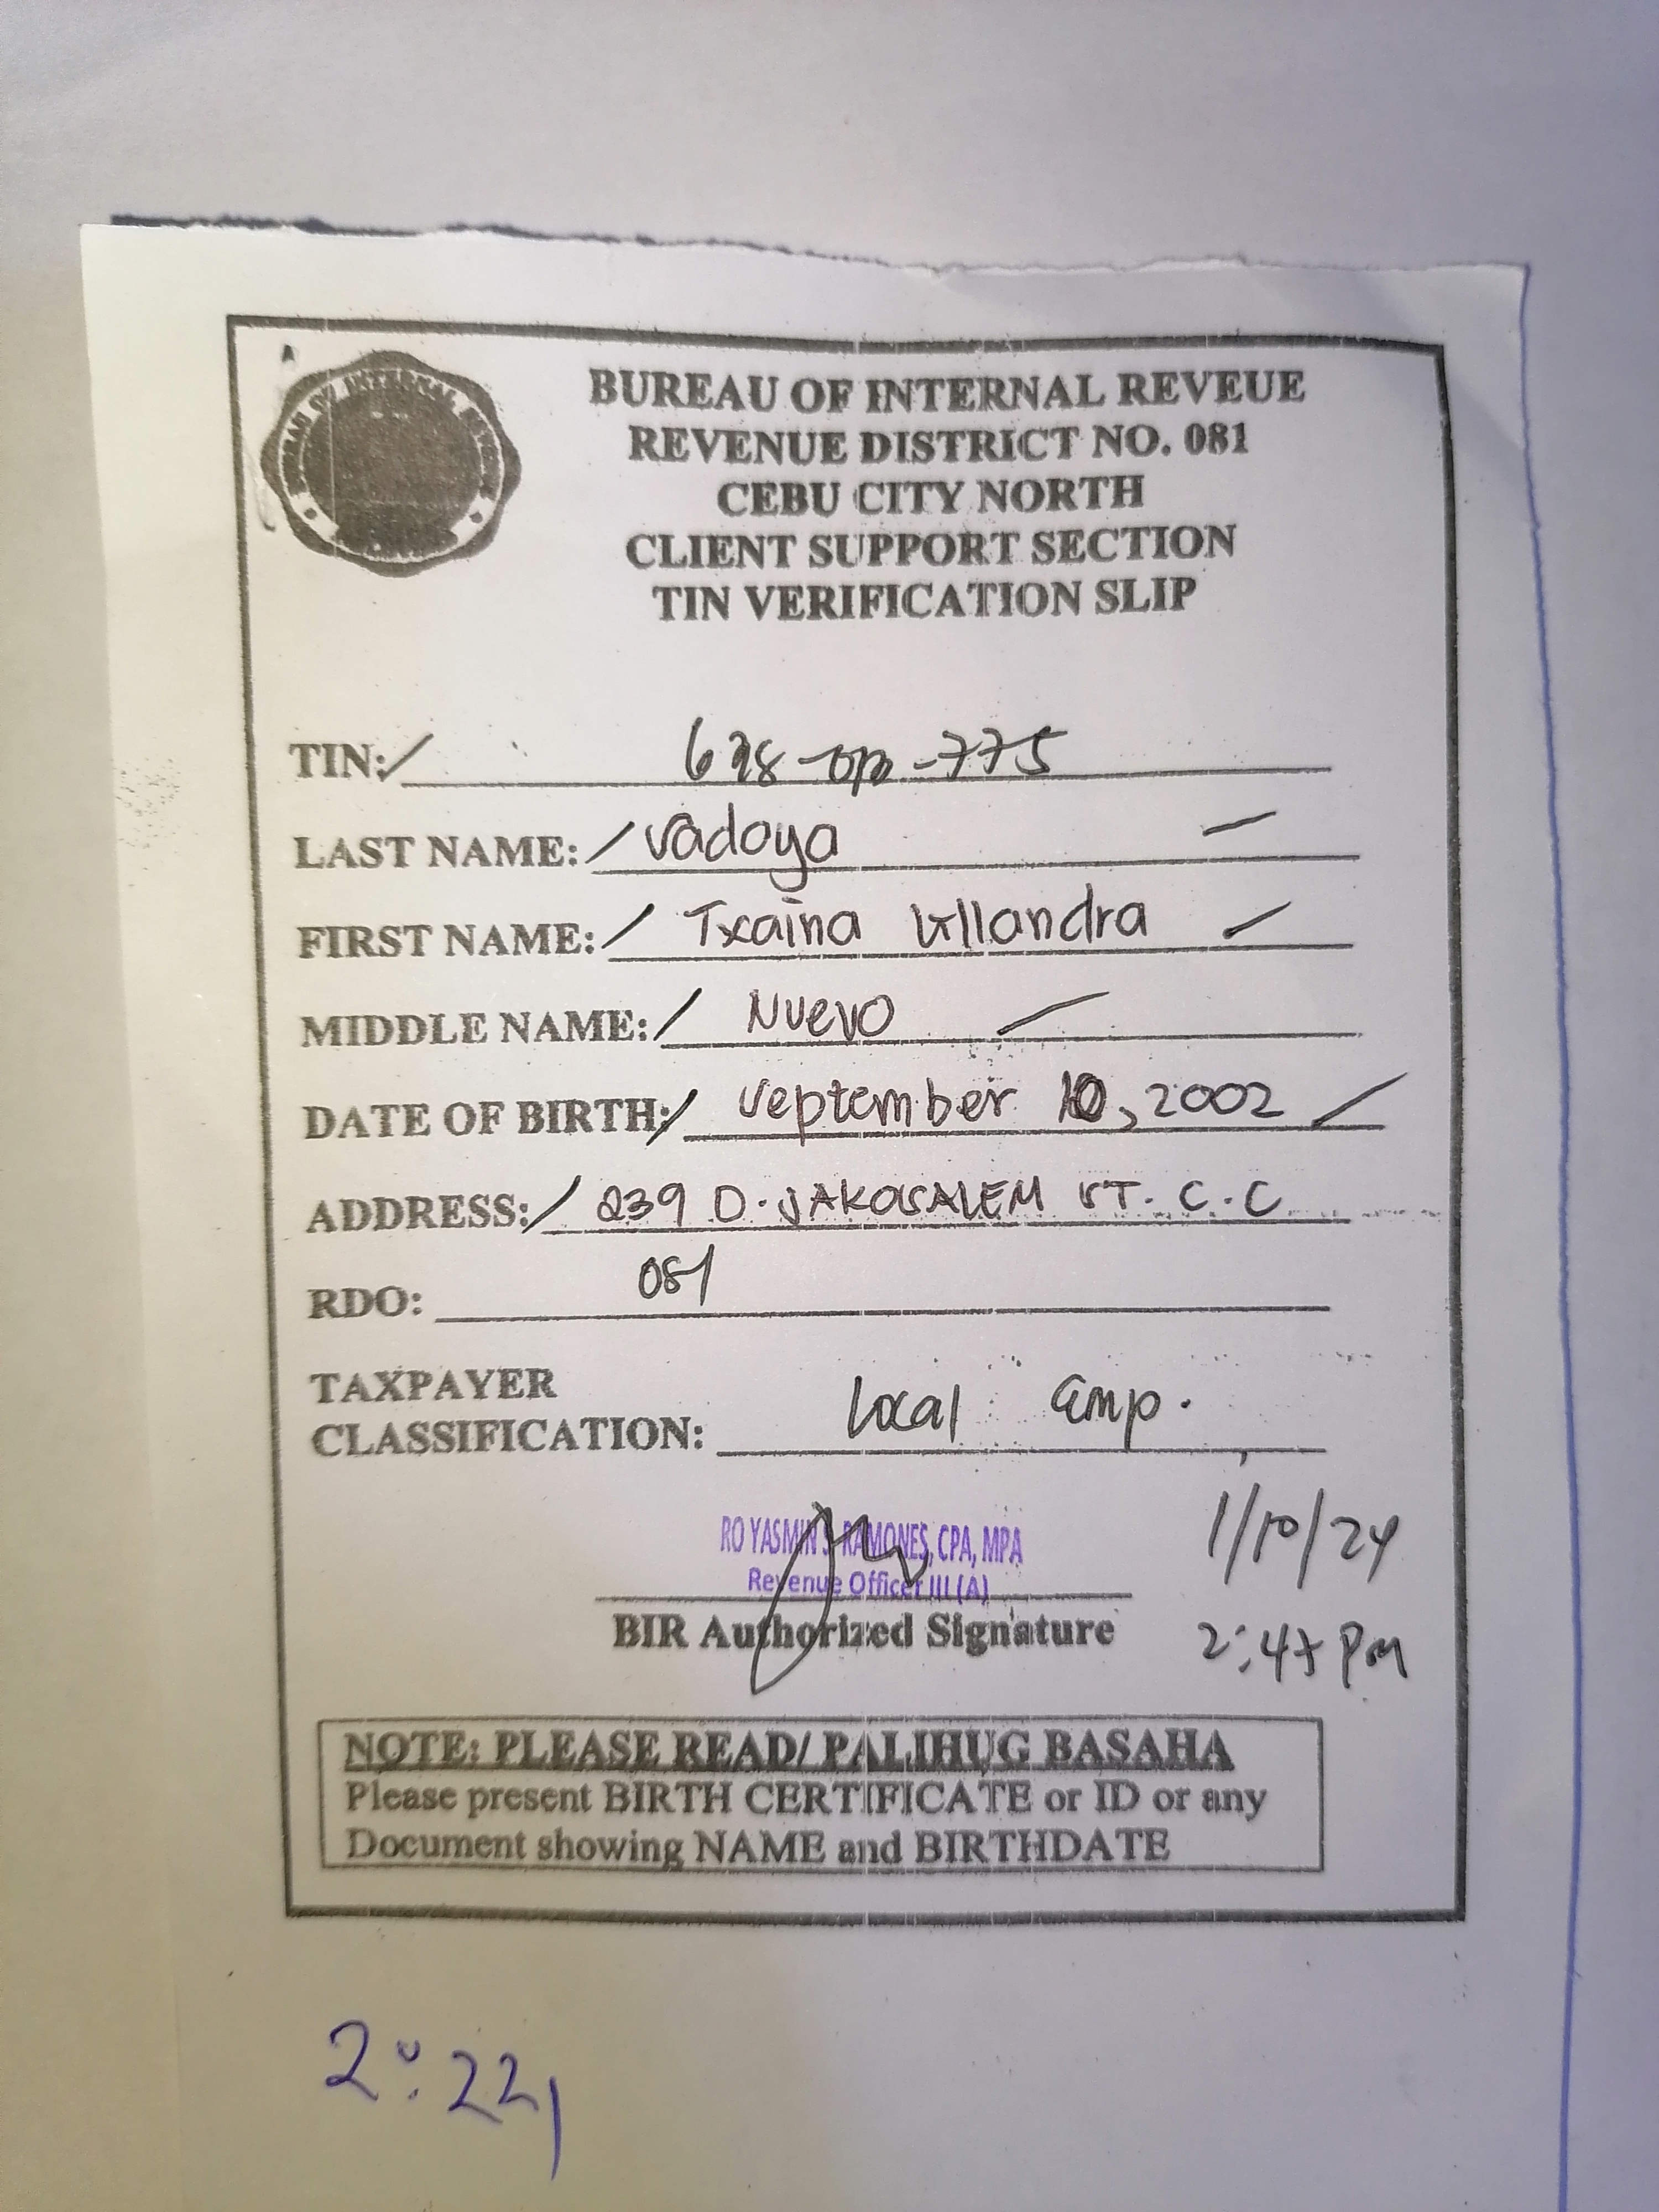 BUREAU OF INTERNAL REVEUE
REVENUE DISTRICT NO. 081
CEBU CITY NORTH
CLIENT SUPPORT SECTION
TIN VERIFICATION SLIP
TIN: -775
LAST NAME: Sadoya
FIRST NAME: Txaina
MIDDLE NAME: Nuevo
DATE OF BIRTH: September 10, 2002
ADDRESS: 239 D. JAKOSALEM ST. C.C
RDO: 081
TAXPAYER
CLASSIFICATION: Local Emp.
RO YASMIN S. RAMONES, CPA, MPA
Revenue Officer III (A)
BIR Authorized Signature
1/10/24
2:47 PM
NOTE: PLEASE READ/ PALIHUG BASAHA
Please present BIRTH CERTIFICATE or ID or any
Document showing NAME and BIRTHDATE
2:22